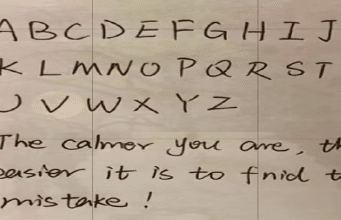 A B C D E F G H I J
K L M N O P Q R S T
U V W X Y Z
The calmer you are, th
easier it is to fnid t
mistake !